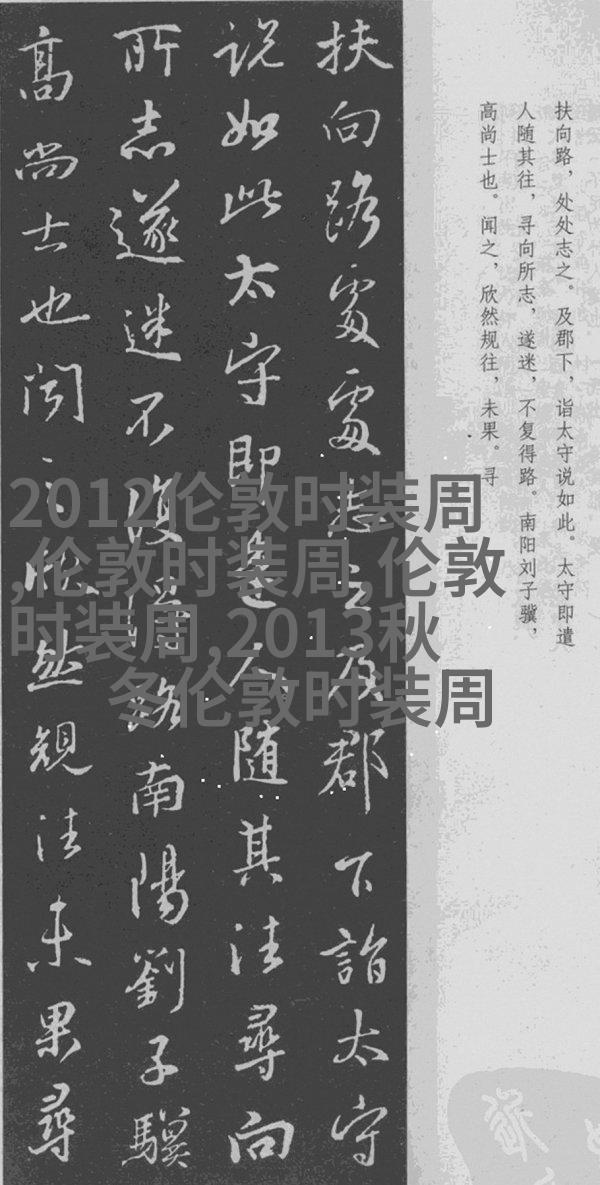 扶向路，处处志之。及郡下，诣太守说如此。太守即遣
人随其往，寻向所志，遂迷，不复得路。南阳刘子骥，
高尚士也。闻之，欣然规往，未果。寻
扶向路處處志之及郡下詣太守
说如此太守即遣人随其往尋向
所志遂迷不復得路南陽劉子驥
高尚士也聞之欣然規往未果尋
2012伦敦时装周
,伦敦时装周,伦敦
时装周,2013秋
冬伦敦时装周